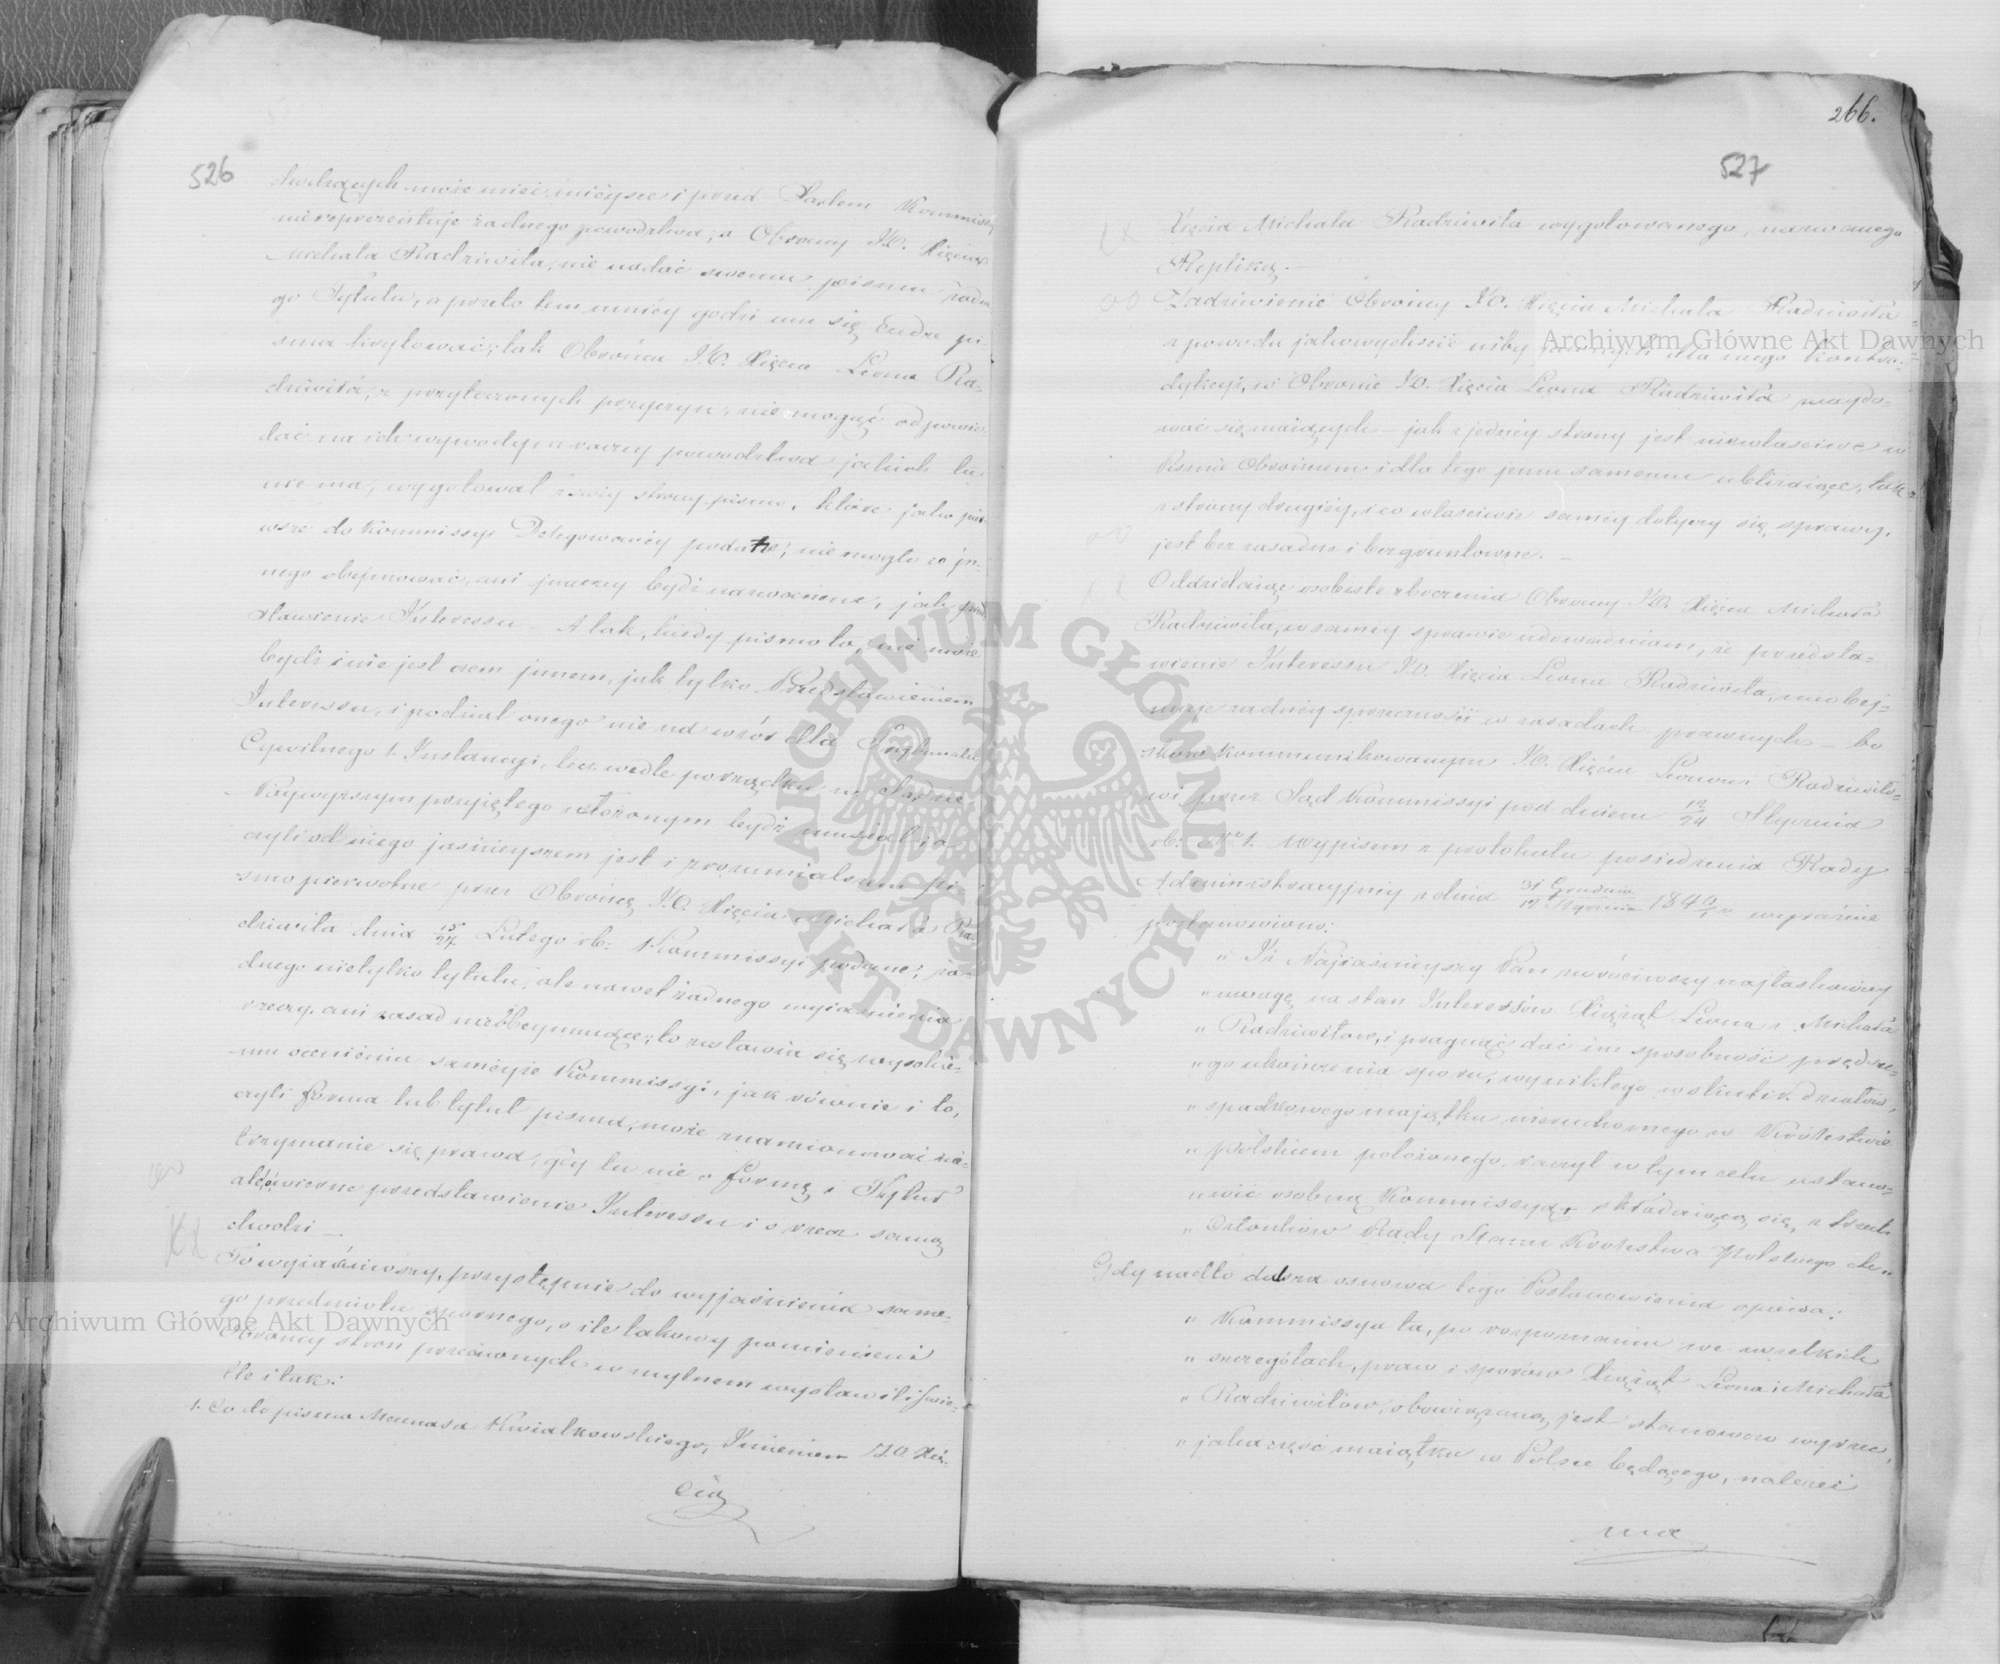 526
chodzących może mieć miéysce i przed Sądem Kommissyi
nie reprezentuje żadnego powodztwa; a Obrońcy J.O. Xięcia
Michała Radziwiła, nie nadać swemu pismu żadne
go Tytułu, a przeto tem mniéy godzi mu się cudze pi-
sma krytować; tak Obrońca J.O. Xięcia Leona Ra-
dziwiła, z przytoczonych przyczyn, nie mogąć odpowie-
dać na ich wywody, a raczey powodztwa jechich tu
nie ma, wygotował z swéy strony pismo, które jako pier
wsze do Kommissyi Delegowanéy podane, nie mogło co in-
nego obejmować, ani inaczey bydź nazwanem, jak przed
stawienie Interessu — A tak, kiedy pismo to, nie może
bydź i nie jest czem innem, jak tylko Przedstawieniem
Interessu, i podział onego nie na wzór dla Trybunału
Cywilnego 1. Instancyi, lecz wedle porządku w Sądzie
Naywyższym przyjętego ułożonym bydź musiał; a
czyli od niego jaśnieyszem jest i zrozumialszem pi-
smo pierwotne przez Obrońcę J.O. Xięcia Michała Ra-
dziwiła dnia 15/27 Lutego rb: Kommissyi podane; ża-
dnego nietylko tytułu, ale nawet żadnego wyiaśnienia
rzeczy, ani zasad nieobeymujące; to zostawia się wysokie-
mu ocenieniu saméyże Kommissyi, jak równie i to,
czyli forma lub tytuł pisma, może znamionować nie-
trzymanie się prawa, gdy tu nie o formę i Tytuł
ale o wierne przedstawienie Interessu i o rzecz samą
chodzi —
To wyiaśniwszy, przystępuie do wyjaśnienia same-
go przedmiotu spornego, o ile takowy pomienieni
Obrońcy stron przeciwnych w mylnem wystawili świe-
tle i tak:
1. Co do pisma Mecenasa Kwiatkowskiego, Imieniem J.O. Xię-
cia
266.
527
Xięcia Michała Radziwiła wygotowanego, nazwanego
Repliką. —
Zadziwienie Obrońcy J.O. Xięcia Michała Radziwiła
z powodu jakowychsić niby dla niego kontra-
dykcyi, w Obronie J.O. Xięcia Leona Radziwiła znaydo-
wać się maiących — jak z jednéy strony jest niewłaściwe w
Pismie Obrończem i dla tego jemu samemu ubliżaiące, tak
z strony drugiéy, i co właściwie saméy dotyczy się sprawy,
jest bezzasadne i bezgruntowne. —
Oddzielaiąc osobiste zboczenia Obrońcy J.O. Xięcia Michała
Radziwiła, w saméy sprawie udowadniam, że przedsta-
wienie Interessu J.O. Xięcia Leona Radziwiła, nieobej-
muje żadnéy sprzeczności w zasadach prawnych — bo
skoro kommunikowanym J.O. Xięciu Leonowi Radziwiło-
wi przez Sąd Kommissyi pod dniem 12/24 Stycznia
rb: Nr 1. wypisem z protokułu posiedzenia Rady
Administracyjnéy z dnia 31 Grudnia/12 Stycznia 1840/1 r. wyraźnie
postanowiono:
„ Iż Najiaśnieyszy Pan zwróciwszy najłaskawszy
„ uwagę na stan Interessów Xiążąt Leona i Michała
„ Radziwiłłów, i pragnąć dać im sposobność prędsze-
„ go ukończenia sporu, wynikłego w skutek działów,
„ spadkowego majątku nieruchomego w Królestwie
„ Polskiem położonego, raczył w tym celu ustano-
„ wić osobną Kommissyą, składaiącą się, z trzech
„ Członków Rady Stanu Królestwa Polskiego etc „
Gdy nadto dalsza osnowa tego Postanowienia opiewa:
„ Kommissya ta, po rozpoznaniu we wszelkich
„ szczegółach, praw i sporów Xiążąt Leona i Michała
„ Radziwiłów, obowiązaną jest stanowczo wyrzec,
„ jaka część maiątku w Polsce będącego, należeć
ma
Archiwum Główne Akt Dawnych
Archiwum Główne Akt Dawnych
ARCHIWUM GŁÓWNE AKT DAWNYCH